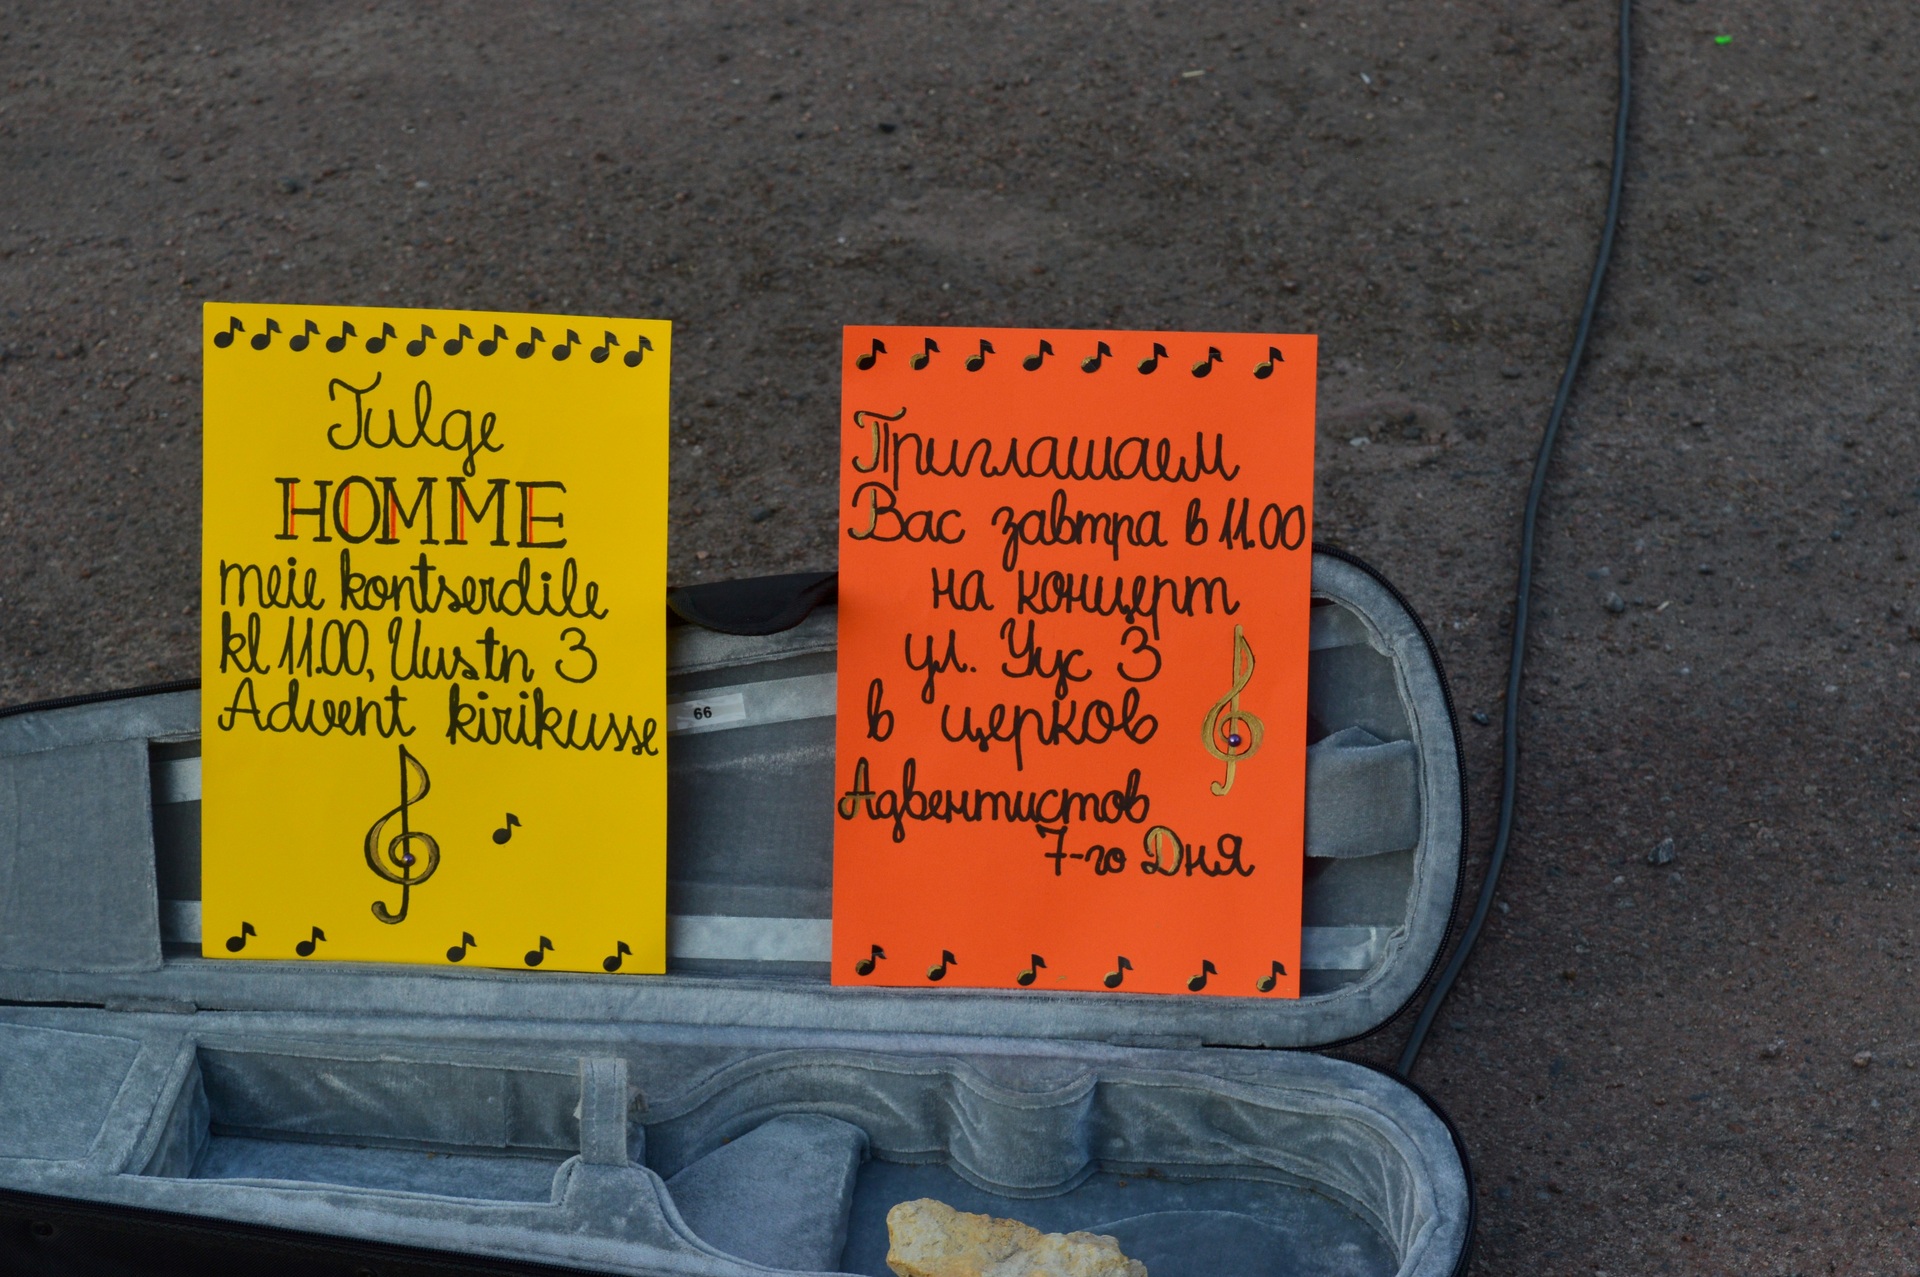 Tulge
HOMME
meie kontserdile
kl 11.00, Uus tn 3
Advent kirikusse
66
Приглашаем
Вас завтра в 11.00
на концерт
ул. Уус 3
в церковь
Адвентистов
7-го Дня